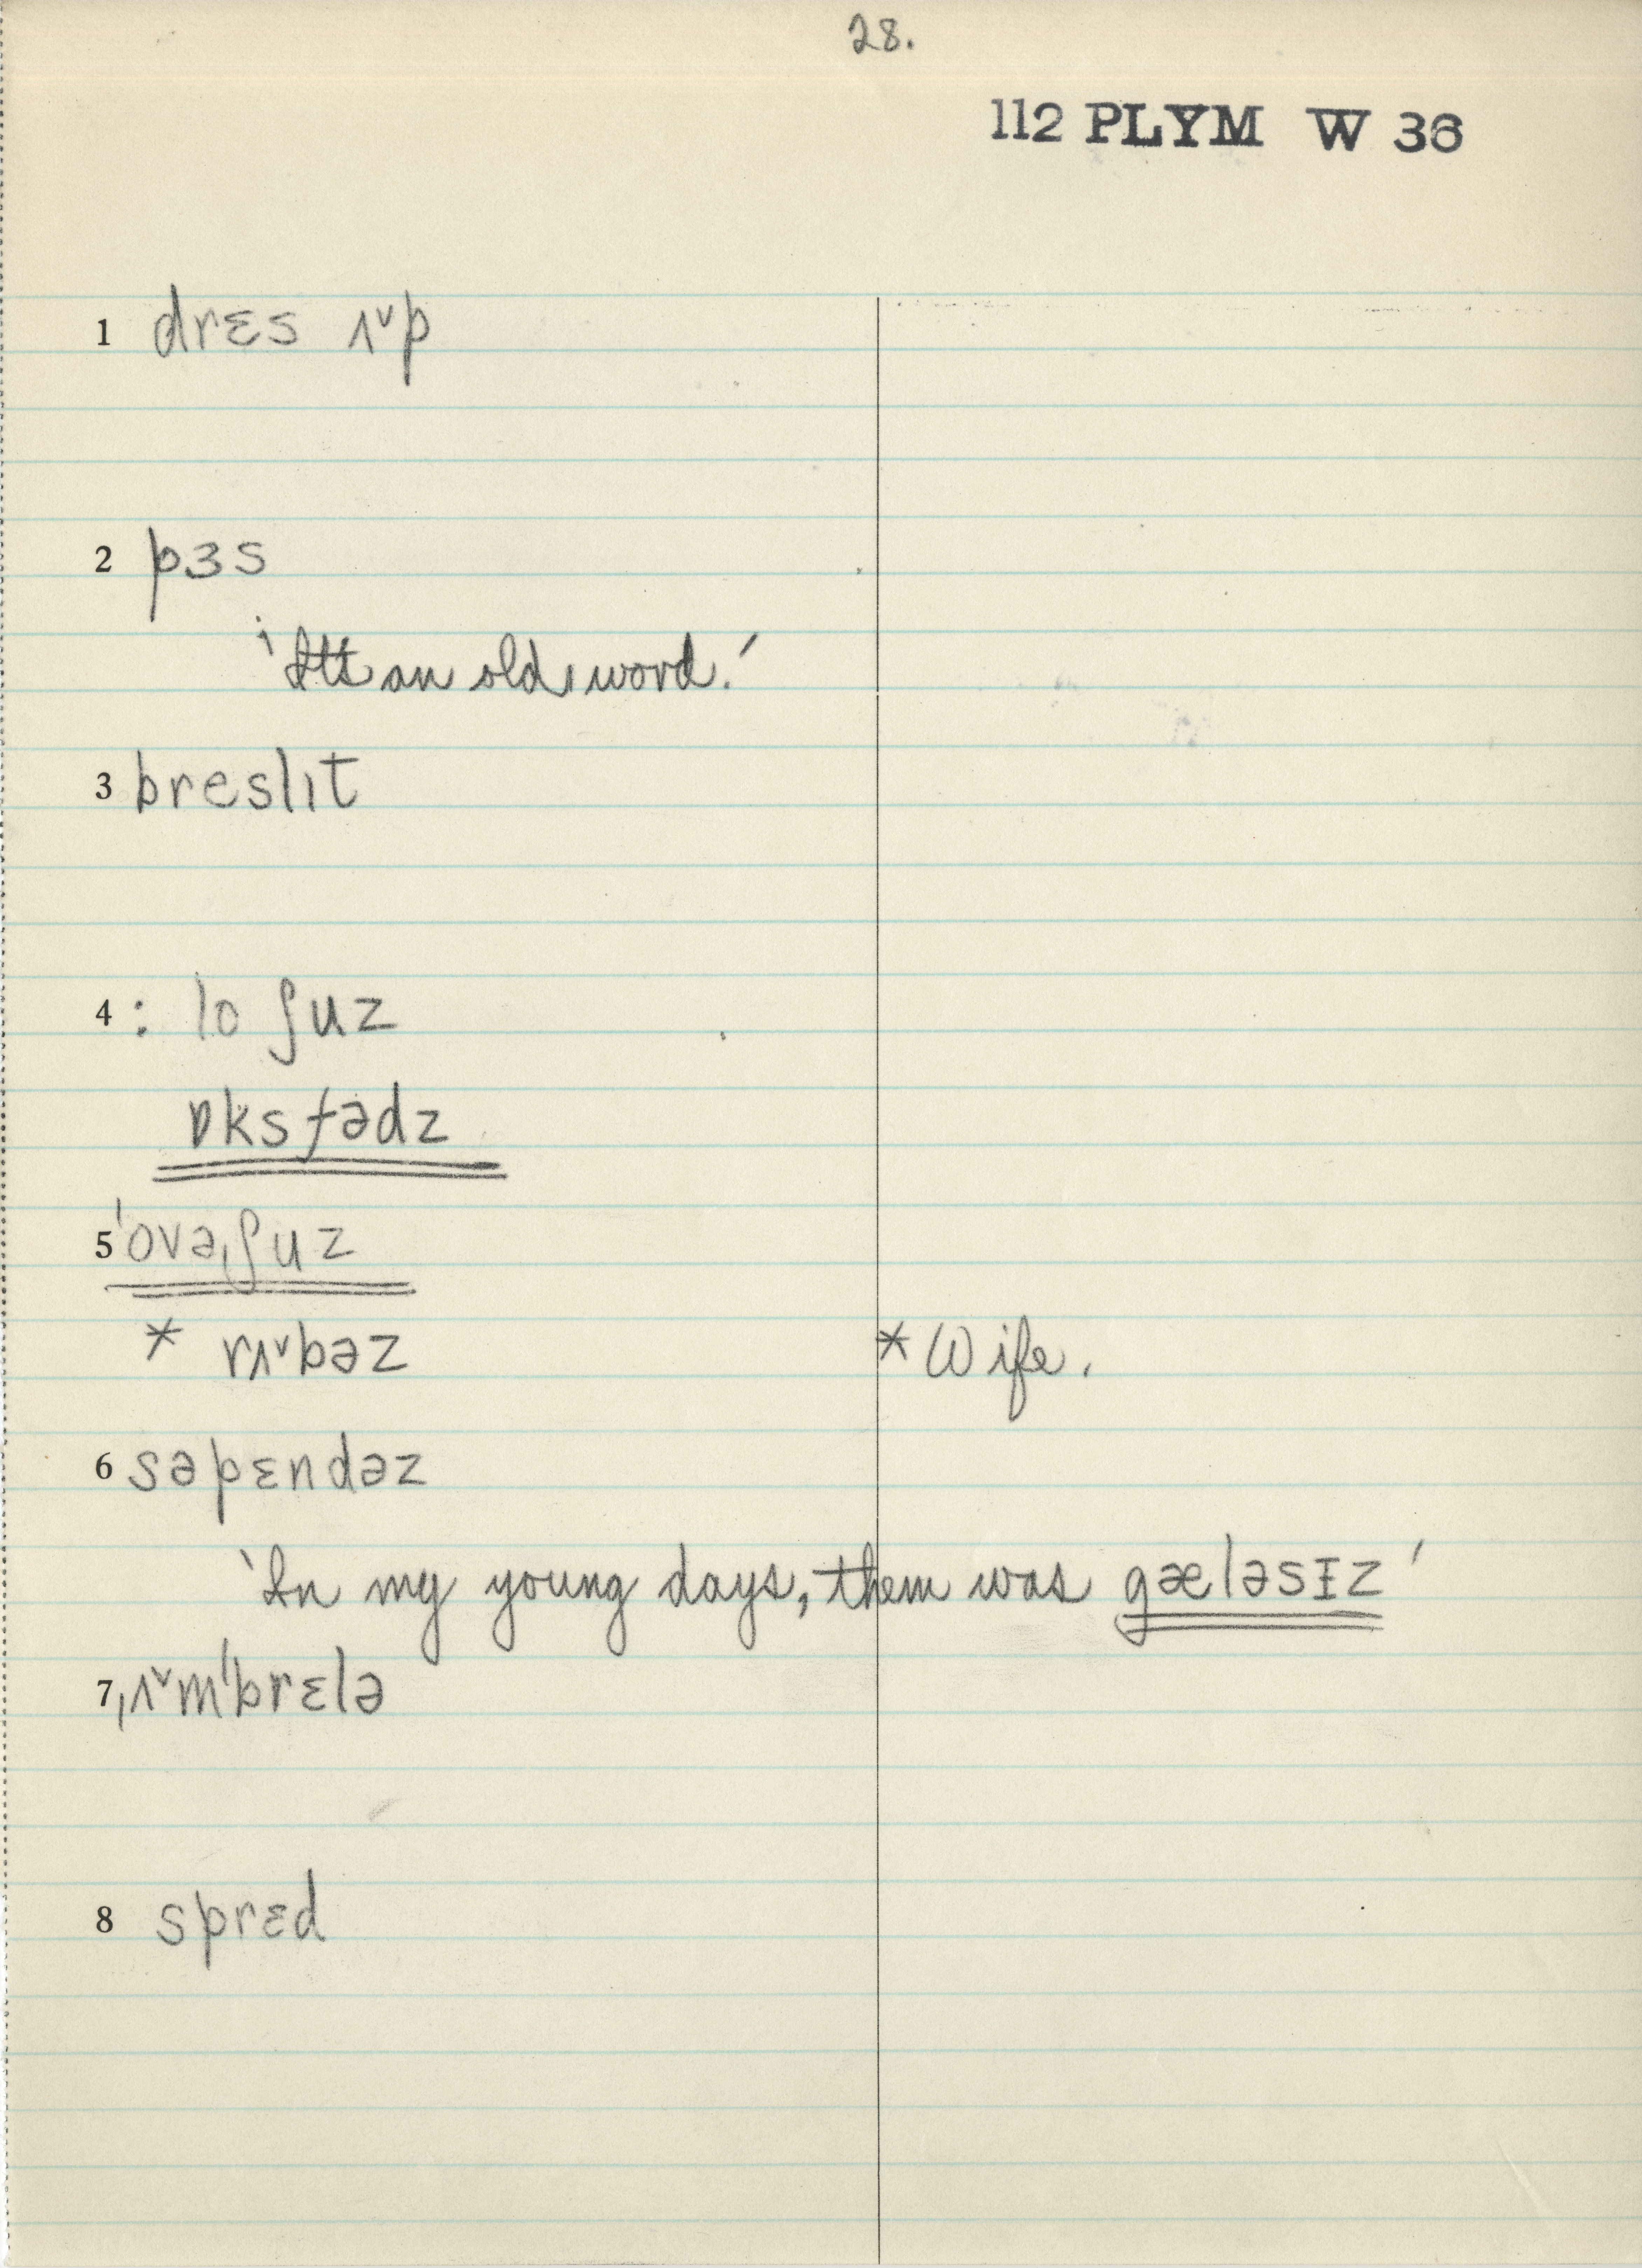 28.
112 PLYM W 36
1 drɛs ʌ˅p
2 pɜs
'It's an old word.'
3 breslɪt
4 : lo ʃuz
ɒksfədz
5 ˈovəˌʃuz
* rʌ˅bəz * Wife.
6 səpɛndəz
'In my young days, them was gæləsɪz'
7 ˌʌ˅mˈbrɛlə
8 sprɛd